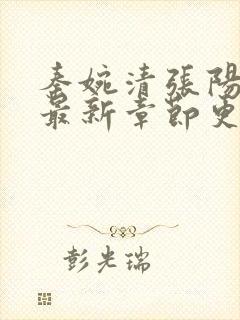 秦婉清張陽
最新章節更
彭光瑞